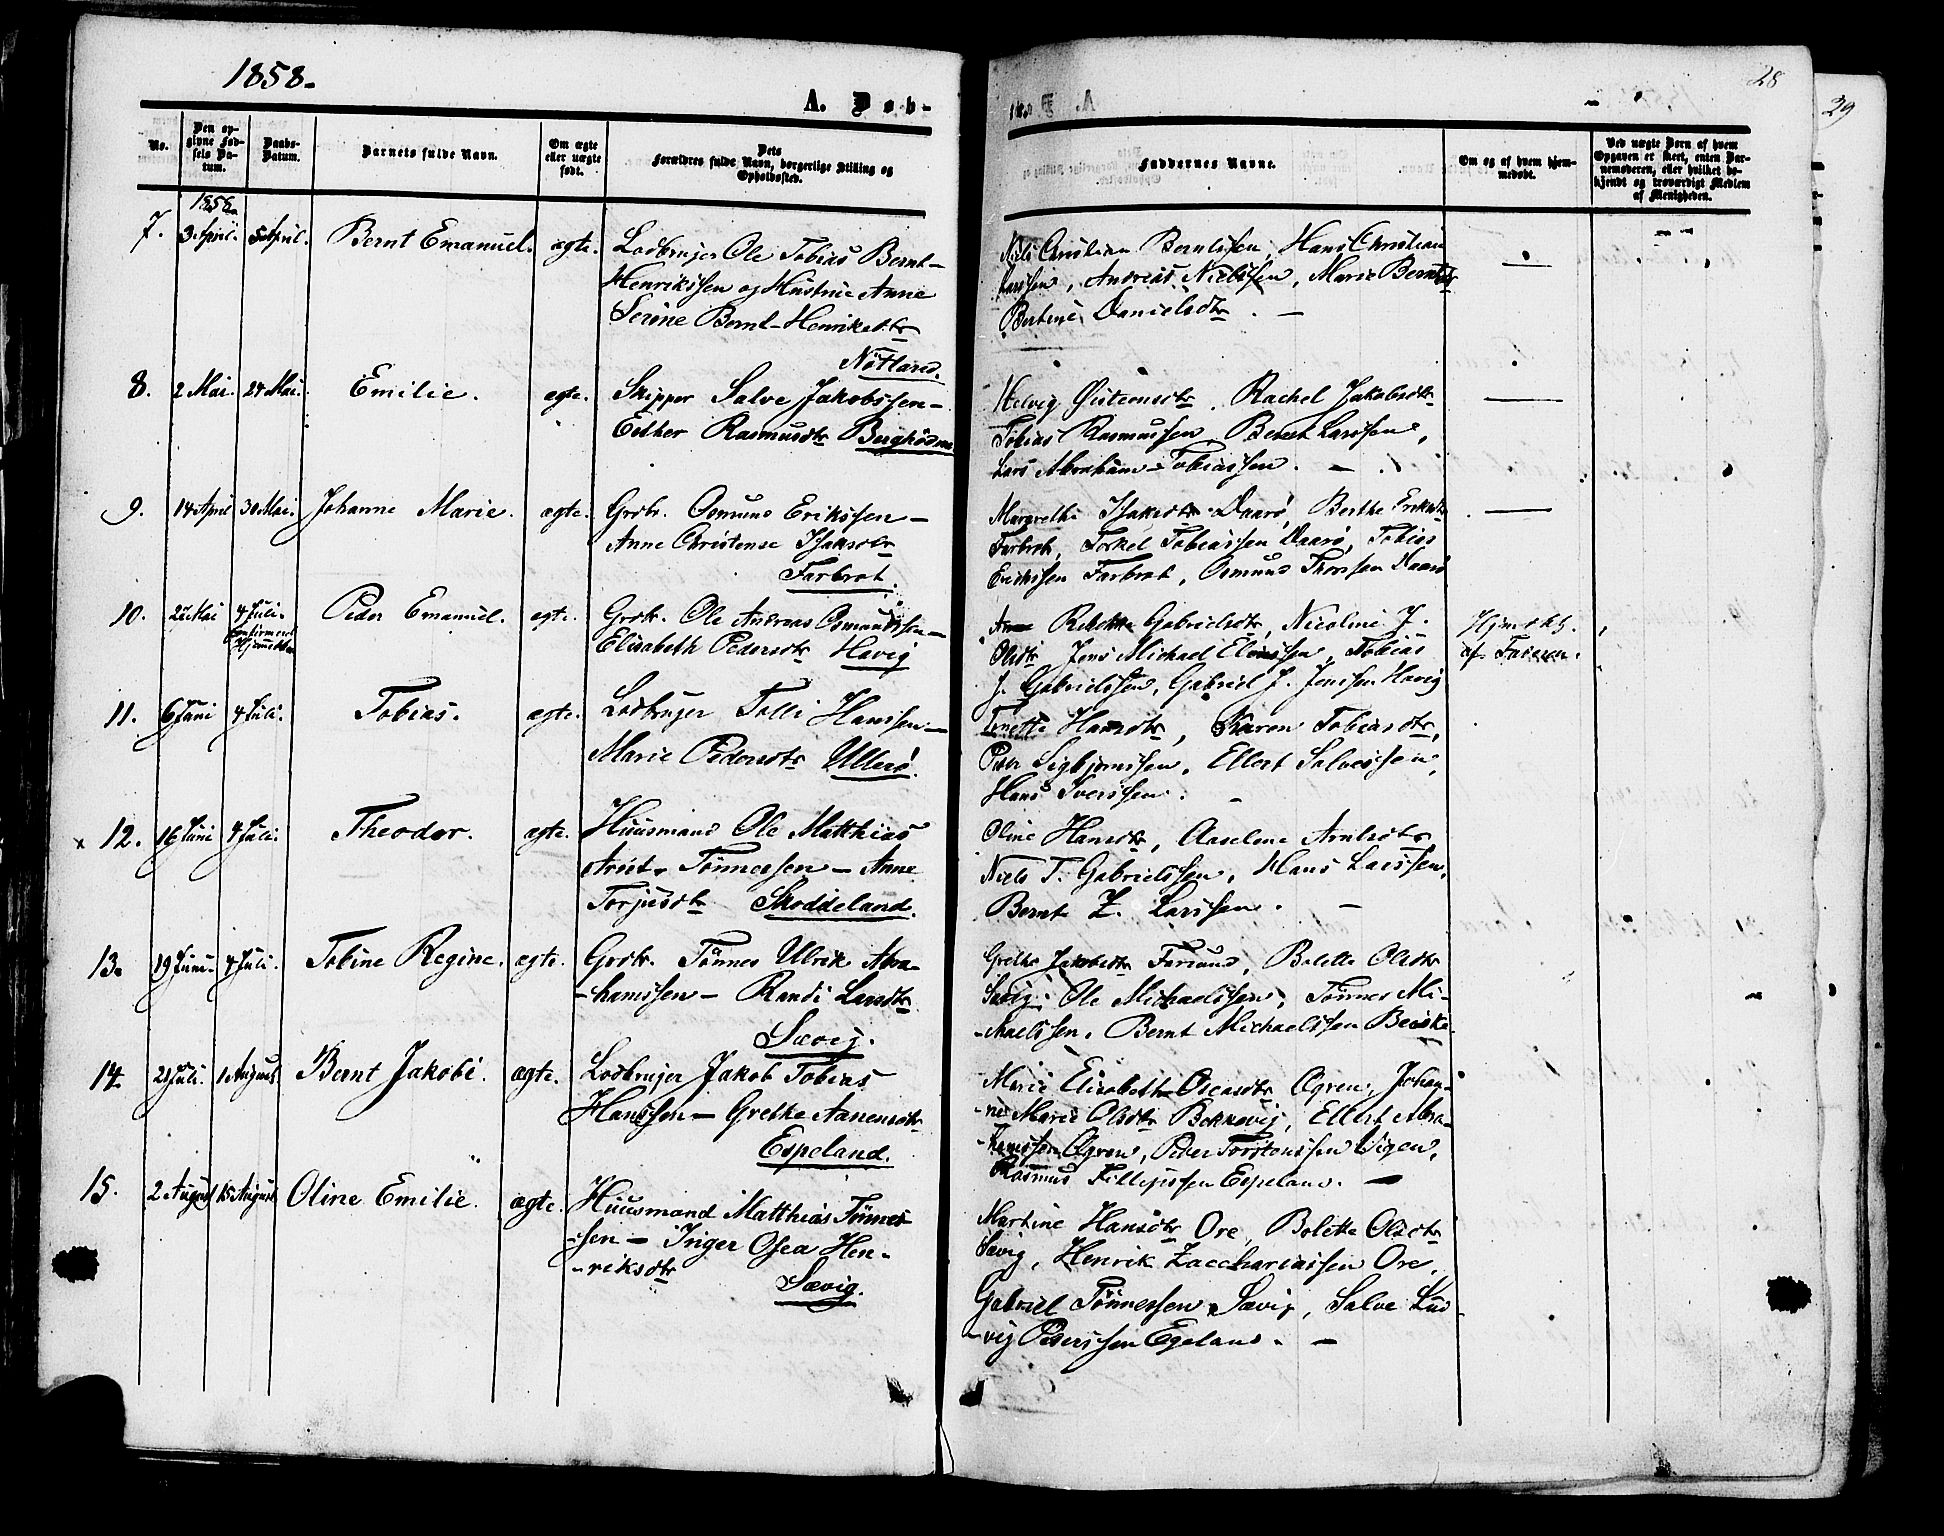 1858.
28
29
A. Døb-
No.
Den op-
givne Fød-
sels Da-
tum.
Daabs-
Datum.
Barnets fulde Navn.
Om ægte
eller uægte
født.
Dets
Forældres fulde Navn, borgerlige Stilling og
Opholdssted.
Faddernes Navne.
Om og af hvem hjem-
medøbt.
Ved uægte Børn af hvem
Opgaven er skeet, enten Bar-
nemoderen, eller hvilket be-
kjendt og troværdigt Medlem
af Menigheden.
1858
7. 3 April. 5 April. Bernt Emanuel. ægte. Lodbruger Ole Tobias Bernt-
Henrikssen og Hustrue Anne
Serine Bernt-Henriksdtr
Nötland.
Niels Christian Berntssen, Hans Christian
Larssen, Andreas Nielssen, Marie Berntsdtr
Bertine Danielsdtr. —
8. 2 Mai. 24 Mai. Emilie. ægte. Skipper Salve Jakobssen—
Esther Rasmusdtr
Helvig Østensdtr. Rachel Jakobsdtr
Tobias Rasmussen, Bernt Larssen,
Lars Abraham-Tobiassen. —
9. 14 April 30 Mai. Johanne Marie. ægte. Grdbr. Osmund Erikssen—
Anne Christense Isaksdtr
Farbrot.
Margrethe Isaksdtr Daarø, Berthe Eriksdtr
Farbrot, Torkel Tobiassen Daarø, Tobias
Erikssen Farbrot, Osmund Thorssen Daarø
10. Mai 4 Juli. Peder Emanuel. ægte. Grdbr. Ole Andreas Osmundssen—
Hjemmedøbt
Elisabeth Pedersdtr Havig
Gabrielsdtr, Nicoline J.
Olsdtr Jens Michael Eliassen, Tobias
J. Gabrielssen, Gabriel J. Jenssen Havig
Hjemdøbt.
af Faderen.
11. 6 Juni 4 Juli. Tobias. ægte. Lodbruger Tolli Hanssen—
Marie Pedersdtr Ullerø.
Tonette Hansdtr, Karen Tobiasdtr,
Peder Sigbjørnssen, Ellert Salvessen,
Hans Iverssen. —
x 12. 16 Juni 4 Juli. Theodor. ægte. Huusmand Ole Matthias
Arnt- Tönnessen — Anne
Torjusdtr Skoddeland.
Oline Hansdtr, Aaselene Arntsdtr
Niels T. Gabrielssen, Hans Larssen,
Bernt Z. Larssen. —
13. 19 Juni. 4 Juli. Tobine Regine. ægte. Grdbr. Tönnes Ulrik Abra-
-hamssen — Randi Larsdtr
Sævig.
Grethe Jakobsdtr Farsund, Bolette Olsdtr
Sævig. Ole Michaelssen, Tönnes Mi-
-chaelssen, Bernt Michaelssen
14. 21 Juli. 1 August Bernt Jakobi. ægte. Lodbruger Jakob Tobias
Hanssen — Grethe Aanensdtr
Espeland.
Marie Elisabeth Oseasdtr Ogren, Johan-
-ne Marie Olsdtr Bekkevig, Ellert Abra-
-hamssen Ogren, Peder Torstenssen Vigen,
Rasmus Fillipssen Espeland. —
15. 2 August 15 August Oline Emilie. ægte. Huusmand Matthias Tönnes-
-sen — Inger Osea Hen-
-riksdtr
Sævig.
Martine Hansdtr Ore, Bolette Olsdtr
Sævig, Henrik Zacchariassen Ore,
Gabriel Tönnessen Sævig, Salve Lud-
-vig Pederssen Egeland. —